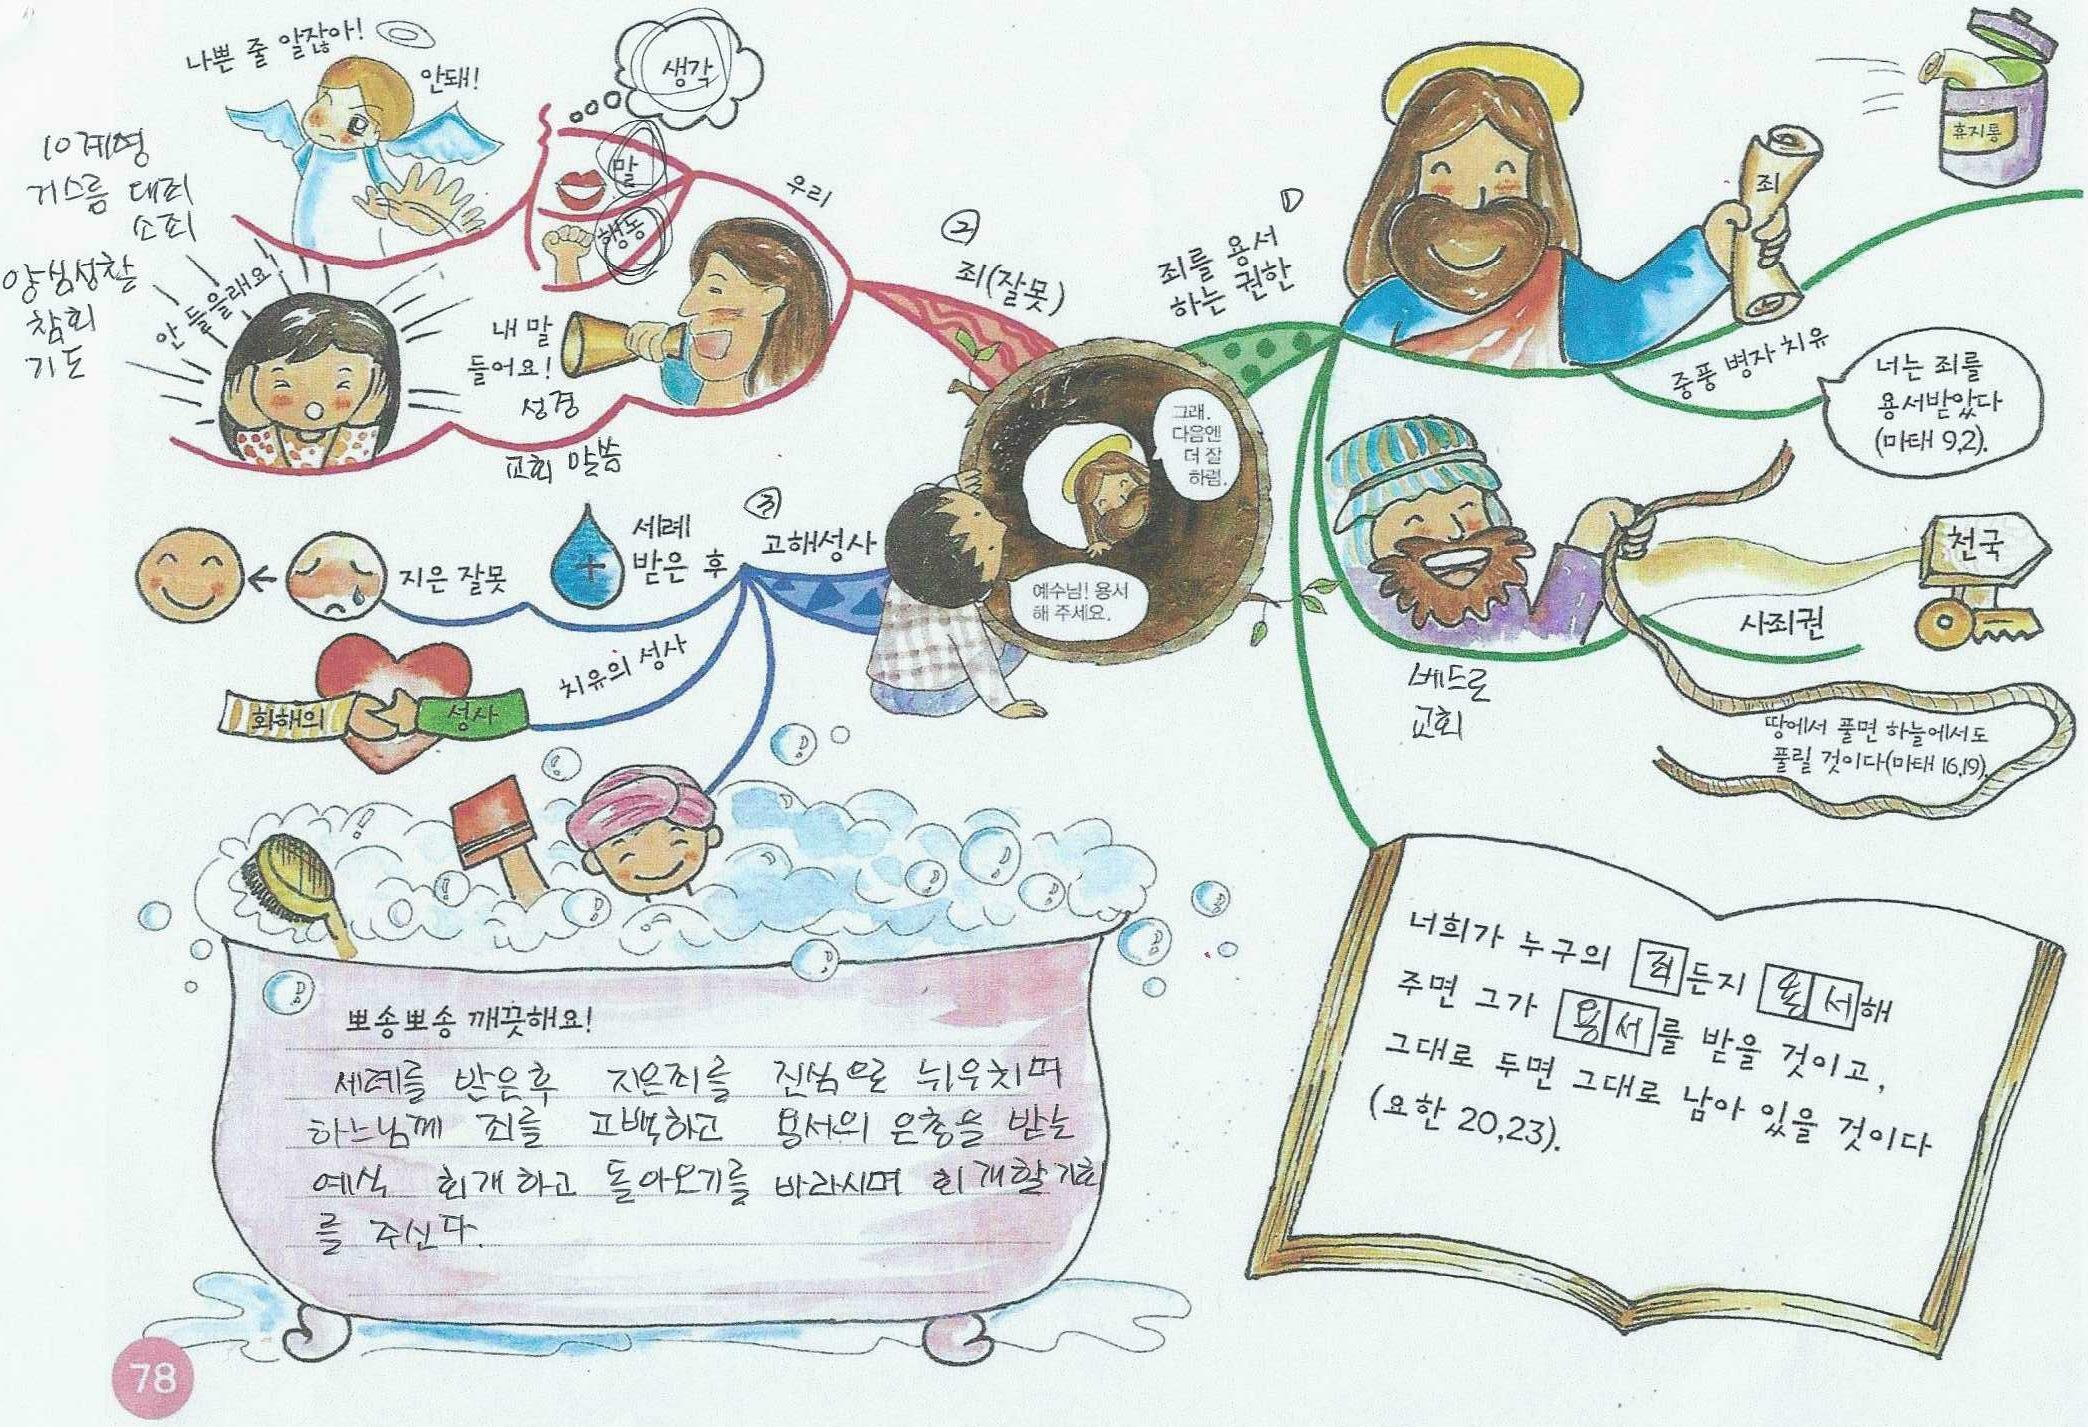 나쁜 줄 알잖아!
안돼!
생각
말
행동
우리
10계명
거스름 대죄
소죄
양심성찰
참회
기도
안 들을래요
내 말
들어요!
성경
교회 말씀
②
죄(잘못)
①
죄를 용서
하는 권한
죄
휴지통
중풍 병자 치유
너는 죄를
용서받았다
(마태 9,2).
그래.
다음엔
더 잘
하렴.
예수님! 용서
해 주세요.
천국
사죄권
베드로
교회
땅에서 풀면 하늘에서도
풀릴 것이다(마태 16,19).
③
고해성사
세례
받은 후
지은 잘못
치유의 성사
화해의 성사
뽀송뽀송 깨끗해요!
세례를 받은후 지은죄를 진심으로 뉘우치며
하느님께 죄를 고백하고 용서의 은총을 받는
예식 회개하고 돌아오기를 바라시며 회개할기회
를 주신다.
너희가 누구의 죄든지 용서해
주면 그가 용서를 받을 것이고,
그대로 두면 그대로 남아 있을 것이다
(요한 20,23).
78